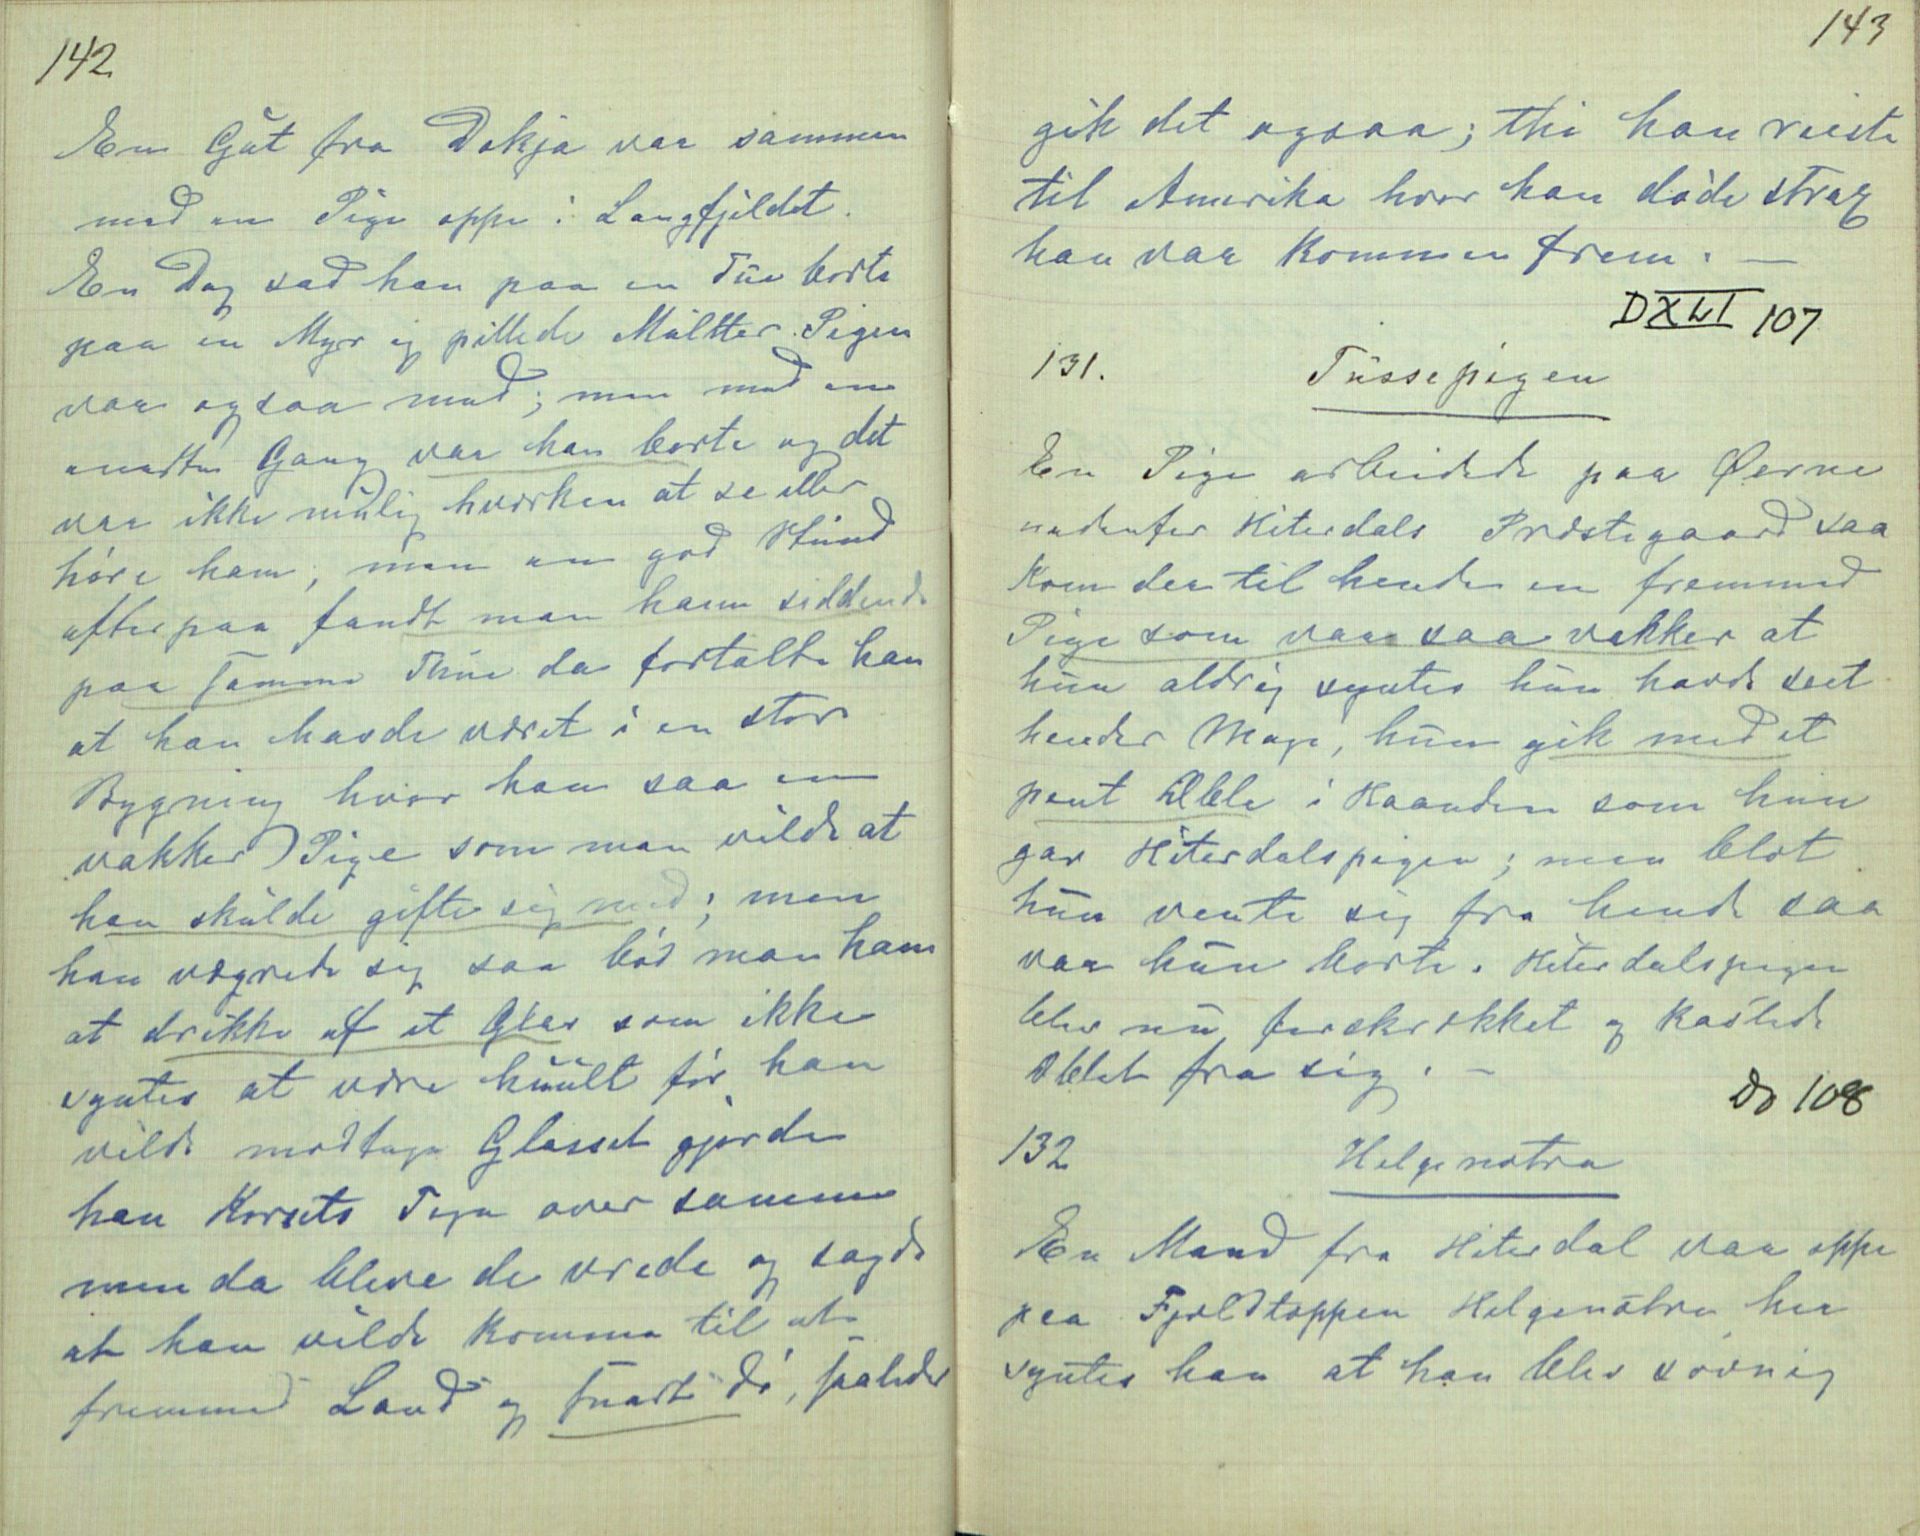 142
En Gut fra Dekja var sammen
med en Pige oppe i Langfjeldet.
En Dag sad han paa en Tue borte
paa en Myr og pillede Mültter. Pigen
var ogsaa med; men med en
anadten Gang var han borte og det
var ikke mulig hværken at se eller
høre ham; men en god Stund
efter paa fandt man ham siddende
paa samme Thue da fortalte han
at han havde været i en stor
Bygning hvor han saa en
vakker Pige som man vilde at
han skulde gifte sig med; men
han vægrede sig saa bød man ham
at drikke af et Glas som ikke
syntes at være huult før han
vilde modtage Glasset gjorde
han Korsets Tegn over samme
men da bleve de vrede og sagde
at han vilde komme til et
fremmed Land og snart dø, saaledes
143
gik det ogsaa; thi han reiste
til Amerika hvor han døde strax
han var kommen frem. —
DXLI 107
131. Tussepigen
En Pige arbeidede paa Øerne
nedenfor Hiterdals Præstegaard saa
kom der til hende en fremmed
Pige som var saa vakker at
hun aldrig syntes hun havde seet
hendes Mage, hun gik med et
pent Æble i Haanden som hun
gav Hiterdalspigen; men blot
hun vente sig fra hende saa
var hun borte. Hiterdalspigen
blev nu forskrækket og kastede
Æblet fra sig. —
Do 108
132 Helgenøtra
En Mand fra Hiterdal var oppe
paa Fjeldtoppen Helgenøtra her
syntes han at han blev søvnig